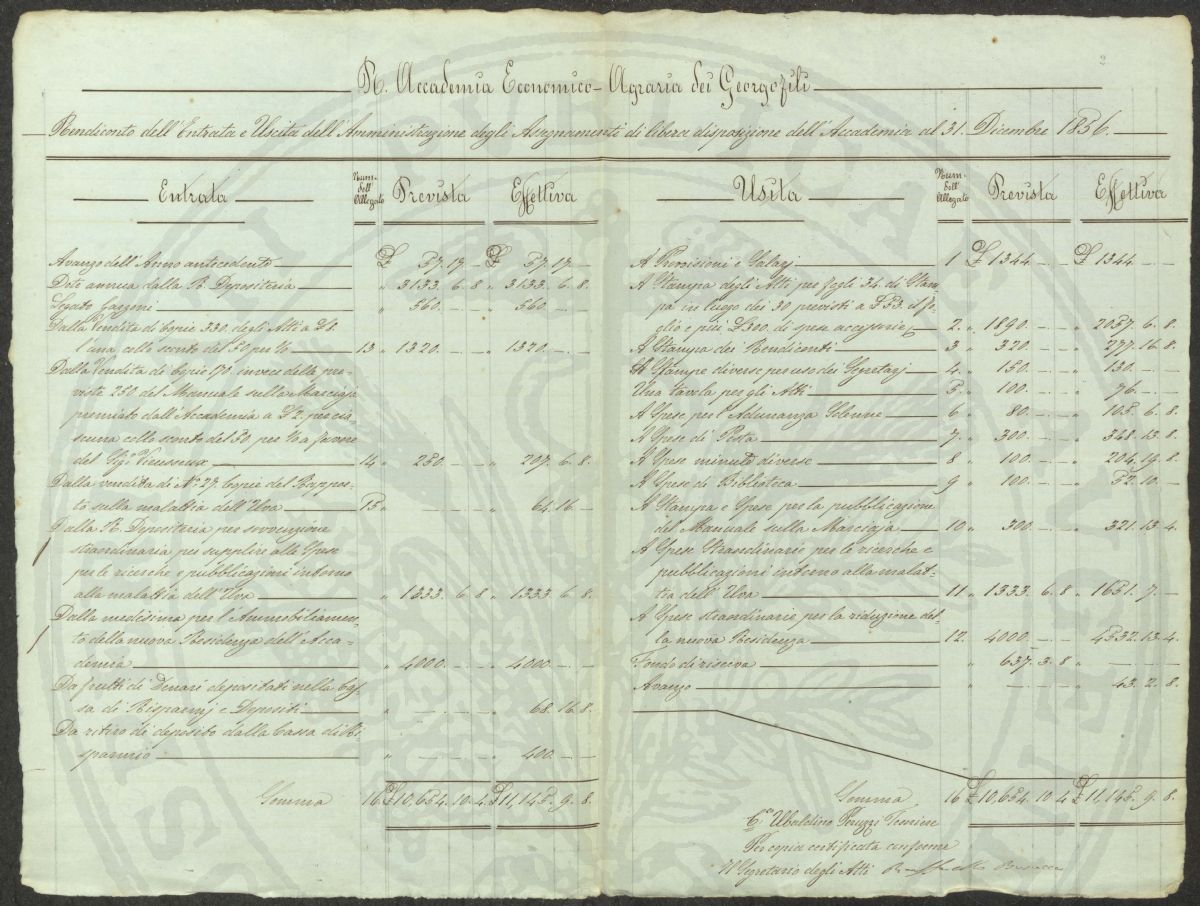 2
R. Accademia Economico-Agraria dei Georgofili
Rendiconto dell'Entrata e Uscita dell'Amministrazione degli Assegnamenti di libera disposizione dell'Accademia al 31. Dicembre 1856.
Entrata Num. dell' Allegato Prevista Effettiva
Avanzo dell'Anno antecedente £ 57. 17. — £ 57. 17. —
Dote annua dalla R. Depositeria „ 3133. 6. 8. „ 3133. 6. 8.
Legato „ 560. — . — „ 560. — . —
Dalla Vendita di Copie 330. degli Atti a £ 8.
l'una collo sconto del 50 per % 13 „ 1320. — . — „ 1320. — . —
Dalla Vendita di Copie 170 invece delle pre-
viste 250 del Manuale sulla Marciaja
premiato dall'Accademia a £ 2. per cia-
scuna collo sconto del 50 per % a favore
del Sig.e Vieusseux 14 „ 250. — . — „ 207. 6. 8.
Dalla vendita di N.o 27. copie del Rappor-
to sulla malattia dell'Uva 15 „ 64. 16 —
Dalla R. Depositeria per sovvenzione
straordinaria per supplire alle Spese
per le ricerche e pubblicazioni intorno
alla malattia dell'Uva „ 1333. 6. 8 „ 1333. 6. 8.
Dalla medesima per l'Ammobiliamen-
to della nuova Residenza dell'Acca-
demia „ 4000. — . — „ 4000. — . —
Da frutti di Denari depositati nella Cas-
sa di Risparmj e Depositi „ — . — . — „ 68. 16. 8.
Da ritiro di deposito dalla Cassa di Ri-
sparmio „ — . — . — „ 400. — . —
Somma 16. £ 10,654. 10. 4. £ 11,145. 9. 8.
Uscita Num. dell' Allegato Prevista Effettiva
A Provisioni e Salarj 1 £ 1344. — . — £ 1344. — . —
A Stampa degli Atti per fogli 34. di Stam-
pa in luogo dei 30 previsti a £ 53. il fo-
glio e più £ 300. di spese accessorie 2. „ 1890. — . — „ 2057. 6. 8.
A Stampa dei Rendiconti 3 „ 320. — . — „ 277. 16. 8.
A Stampe diverse per uso dei Segretarj 4. „ 150. — . — „ 130. — . —
Una tavola per gli Atti 5. „ 100. — . — „ 76. — . —
A Spese per l'Adunanza Solenne 6 „ 80. — . — „ 105. 6. 8.
A Spese di Posta 7. „ 300. — . — „ 348. 13. 8.
A Spese minute diverse 8 „ 100. — . — „ 204. 19. 8.
A Spese di Biblioteca 9 „ 100. — . — „ 52. 10. —
A Stampa e Spese per la pubblicazione
del Manuale sulla Marciaja 10 „ 300. — . — „ 321. 13. 4.
A Spese Straordinarie per le ricerche e
pubblicazioni intorno alla malat-
tia dell'Uva 11 „ 1333. 6. 8 „ 1651. 7. —
A Spese straordinarie per la riduzione del-
la nuova Residenza 12. „ 4000. — . — „ 4532. 13. 4.
Fondo di riserva „ 637. 3. 8 „ — . — . —
Avanzo „ — . — . — „ 43. 2. 8.
Somma 16 £ 10,654. 10. 4 £ 11,145. 9. 8.
Ubaldino Peruzzi Tesoriere
Per copia certificata conforme
Il Segretario degli Atti